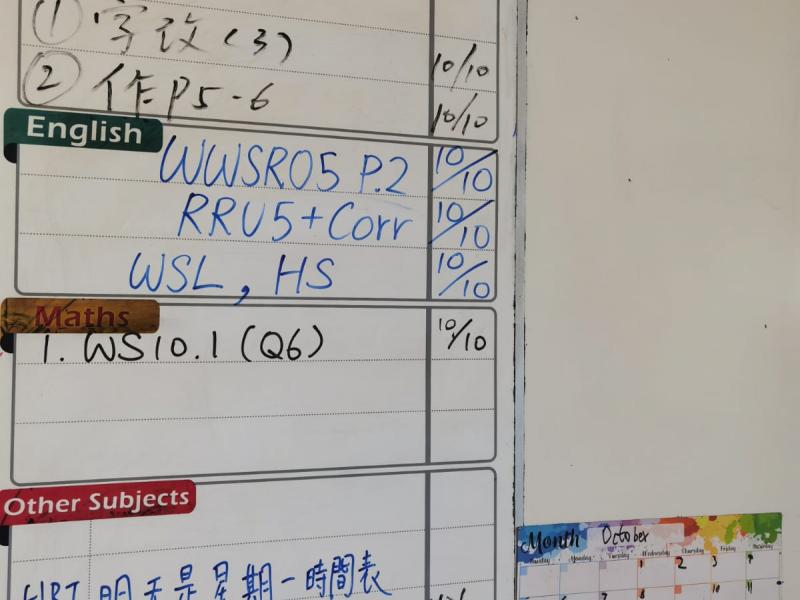 ① 字改(3) 10/10
② 作P5-6 10/10
English
WWSR05 P.2 10/10
RRU5+Corr 10/10
WSL, HS 10/10
Maths
1. WS10.1(Q6) 10/10
Other Subjects
明天是星期一時間表
Month October
Sunday Monday Tuesday Wednesday Thursday Friday Saturday
1 2 3 4
10 11